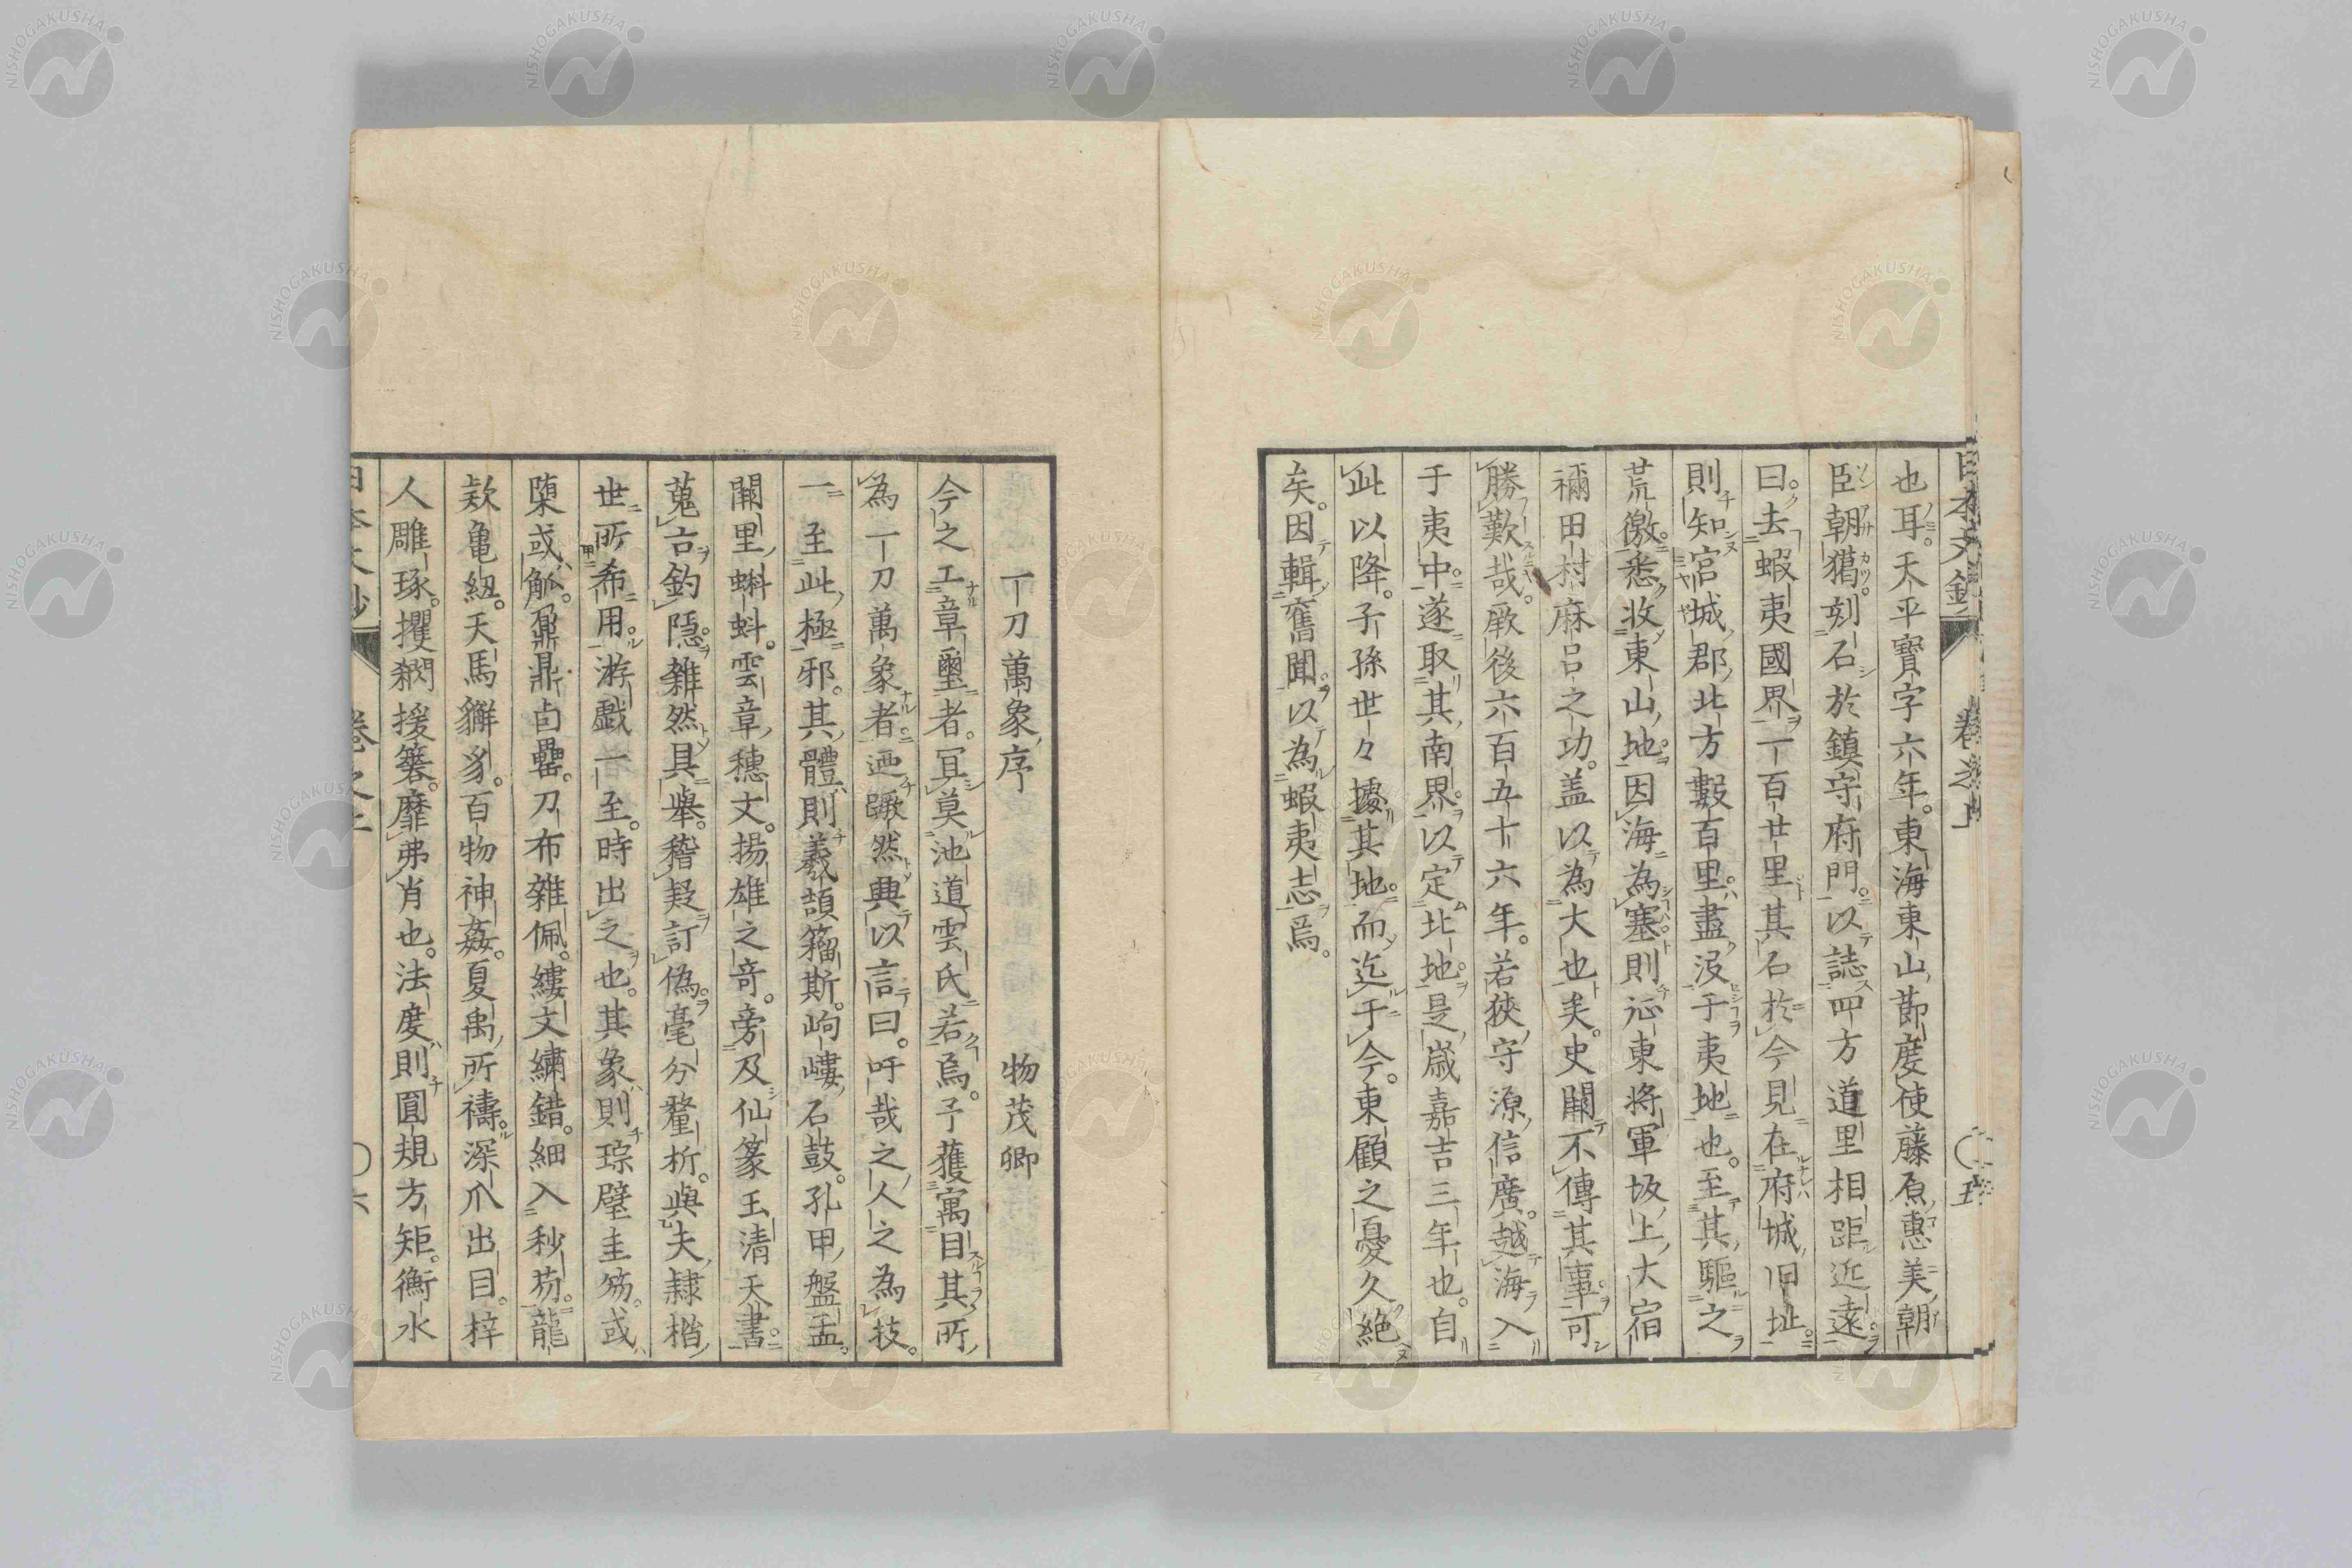 也耳。天平寶字六年。東海東山節度使藤原惠美朝
臣朝獦。刻石於鎮守府門。以誌四方道里相距近遠。
曰。去蝦夷國界一百廿里。其石於今見在府城旧址。
則知宮城郡北方數百里。盡沒于夷地也。至其驅之
荒徼。悉收東山地。因海為塞。則征東將軍坂上大宿
禰田村麻呂之功。盖以為大也矣。史闕不傳其事。可
勝歎哉。厥後六百五十六年。若狹守源信廣。越海入
于夷中。遂取其南界。以定北地。是歲嘉吉三年也。自
此以降。子孫世々據其地。而迄于今。東顧之憂久絕
矣。因輯舊聞。以為蝦夷志焉。
一刀萬象序 物茂卿
今之工章璽者。冥莫池道雲氏若焉。予獲寓目其所
為一刀萬象者。迺蹶然興以言曰。吁哉之人之為技。
一至此極邪。其體則羲頡籀斯。岣嶁石鼓。孔甲盤盂。
闕里蝌蚪。雲章穗文。揚雄之奇。旁及仙篆玉清天書。
蒐古釣隱。雜然具舉。稽疑訂偽。毫分釐析。與夫隸楷
世所希用。游戲一至。時出之也。其象則琮璧圭笏。或
橢或觚。鼐鼎卣罍。刀布雜佩。縷文繡錯。細入秒芴。龍
款亀紐。天馬獬豸。百物神姦。夏禹所禱。深爪出目。梓
人雕琢。攫閷援簭。靡弗肖也。法度則圓規方矩。衡水
日本文鈔 卷之上 〇五
日本文鈔 卷之上 〇六
NISHOGAKUSHA